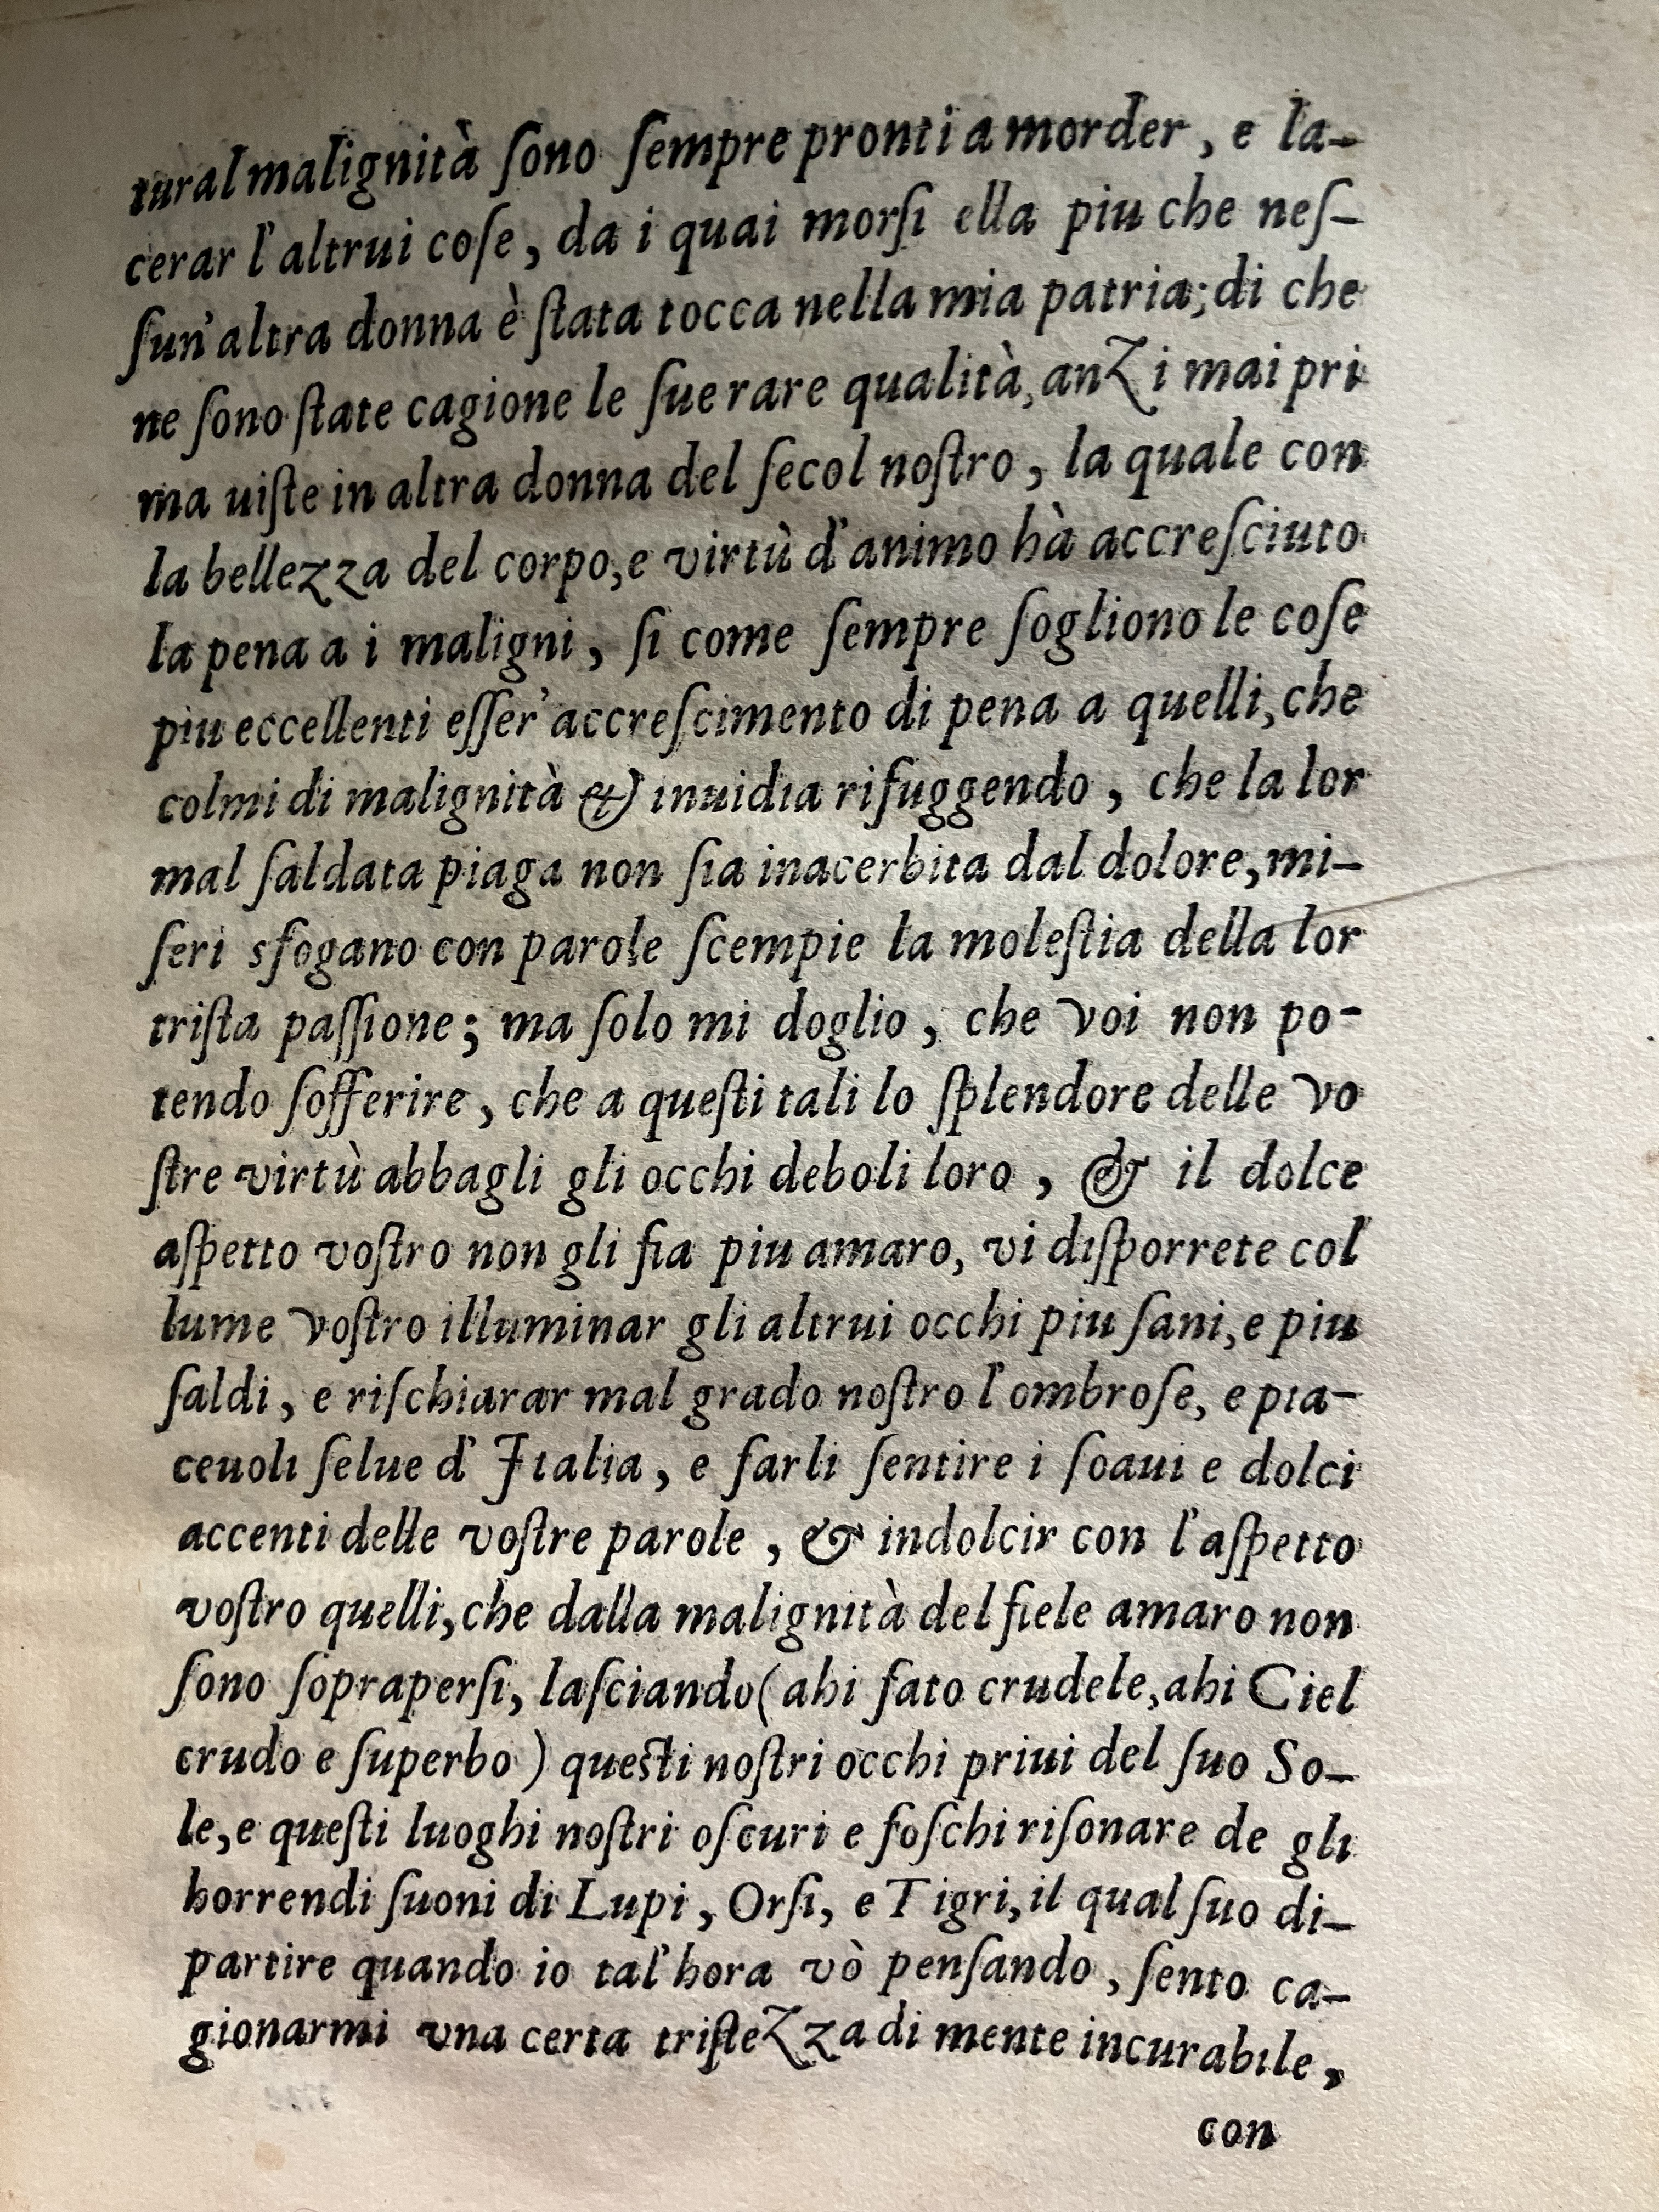 tural malignità ſono ſempre pronti a morder, e la-
cerar l'altrui coſe, da i quai morſi ella piu che neſ-
ſun'altra donna è ſtata tocca nella mia patria; di che
ne ſono ſtate cagione le ſue rare qualità, anzi mai pri
ma uiſte in altra donna del ſecol noſtro, la quale con
la bellezza del corpo, e virtù d'animo hà accreſciuto
la pena a i maligni, ſi come ſempre ſogliono le coſe
piu eccellenti eſſer' accreſcimento di pena a quelli, che
colmi di malignità & inuidia rifuggendo, che la lor
mal ſaldata piaga non ſia inacerbita dal dolore, mi-
ſeri sfogano con parole ſcempie la moleſtia della lor
triſta paſſione; ma ſolo mi doglio, che voi non po-
tendo ſofferire, che a queſti tali lo ſplendore delle vo
ſtre virtù abbagli gli occhi deboli loro, & il dolce
aſpetto voſtro non gli fia piu amaro, vi diſporrete col
lume voſtro illuminar gli altrui occhi piu ſani, e piu
ſaldi, e riſchiarar mal grado noſtro l'ombroſe, e pia-
ceuoli ſelue d'Italia, e farli ſentire i ſoaui e dolci
accenti delle voſtre parole, & indolcir con l'aſpetto
voſtro quelli, che dalla malignità del fiele amaro non
ſono ſoprapерſi, laſciando (ahi fato crudele, ahi Ciel
crudo e ſuperbo) queſti noſtri occhi priui del ſuo So-
le, e queſti luoghi noſtri oſcuri e foſchi riſonare de gli
horrendi ſuoni di Lupi, Orſi, e Tigri, il qual ſuo di-
partire quando io tal'hora vò penſando, ſento ca-
gionarmi vna certa triſtezza di mente incurabile,
con